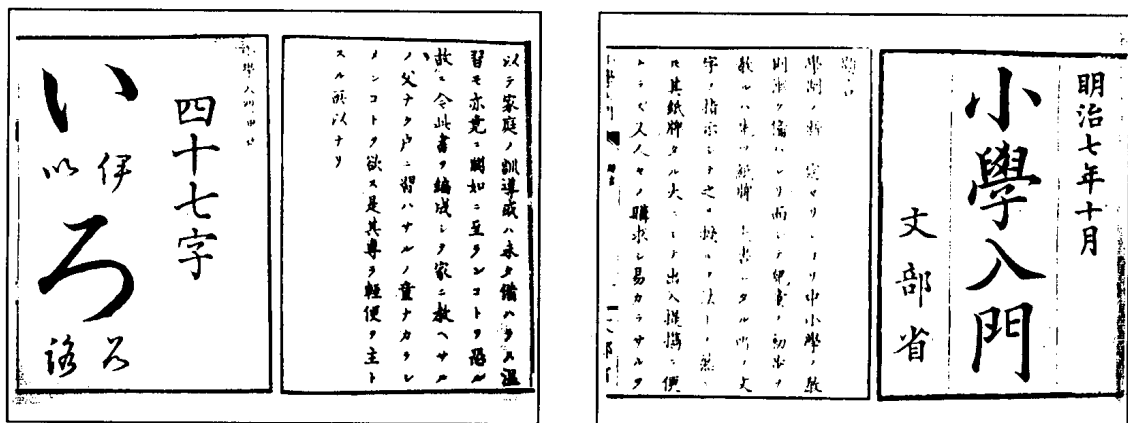 明治七年十月
小學入門
文部省
學制ノ
マリショリ中小學ノ教
則漸ク備ハレリ而シテ
教ルハ先ツ紙牌ニ書シタル所ノ文
字ヲ指示シテ之ヲ
其紙牌タル大ニシテ出入提携ニ便
ナラズ又人々ノ購求シ易カラサルヲ
以テ家庭ノ訓導或ハ未タ備ハラス温
習モ亦竟ニ闕如ニ至ランコトヲ恐ル
故ニ今此書ヲ編成シテ家ニ教ヘサル
ノ父ナク戸ニ習ハサルノ童ナカラシ
メンコトヲ欲ス是其專ラ輕便ヲ主ト
スル所以ナリ
四十七字
い
伊
以
ろ
呂
路